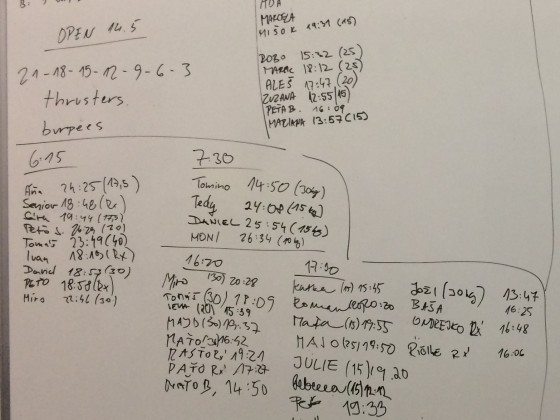 OPEN 14.5
21-18-15-12-9-6-3
thrusters
burpees
MAROŠA
MIŠOK 19:31 (15)
BOBO 15:32 (25)
MAREK 18:12 (25)
ALEŠ 17:47 (20)
ZUZANA 12:55 (15)
PEŤA B. 16:09
MARIANA 13:57 (15)
6:15
24:25 (17,5)
Senior 18:48 (Rx)
19:44 (17,5)
Peťo S. (20)
Tomáš 23:49 (40)
Ivan 18:19 (Rx)
David 18:52 (30)
PAŤO 18:58 (Rx)
Miro 22:46 (30)
7:30
Tomino 14:50 (30kg)
Tedy 24:08 (15kg)
DANIEL 25:54 (15kg)
MONI 26:34 (10kg)
16:20
Miro (30) 20:28
TOMÁŠ (30) 18:09
(20) 15:39
MAJO (30) 19:37
MAŤO 16:42
RASŤO Rx 19:21
PAŤO Rx 17:27
MAŤO B, 14:50
17:30
Katka (15) 15:45
Roman 20:20
Maťa (15) 19:55
MAJO (25) 19:50
JULIE (15) 19.20
Rebecca (15) 12:12
19:33
JOŽI (30kg) 13:47
BAŠA 16:25
ONDREJKO Rx 16:48
Rx 16:06